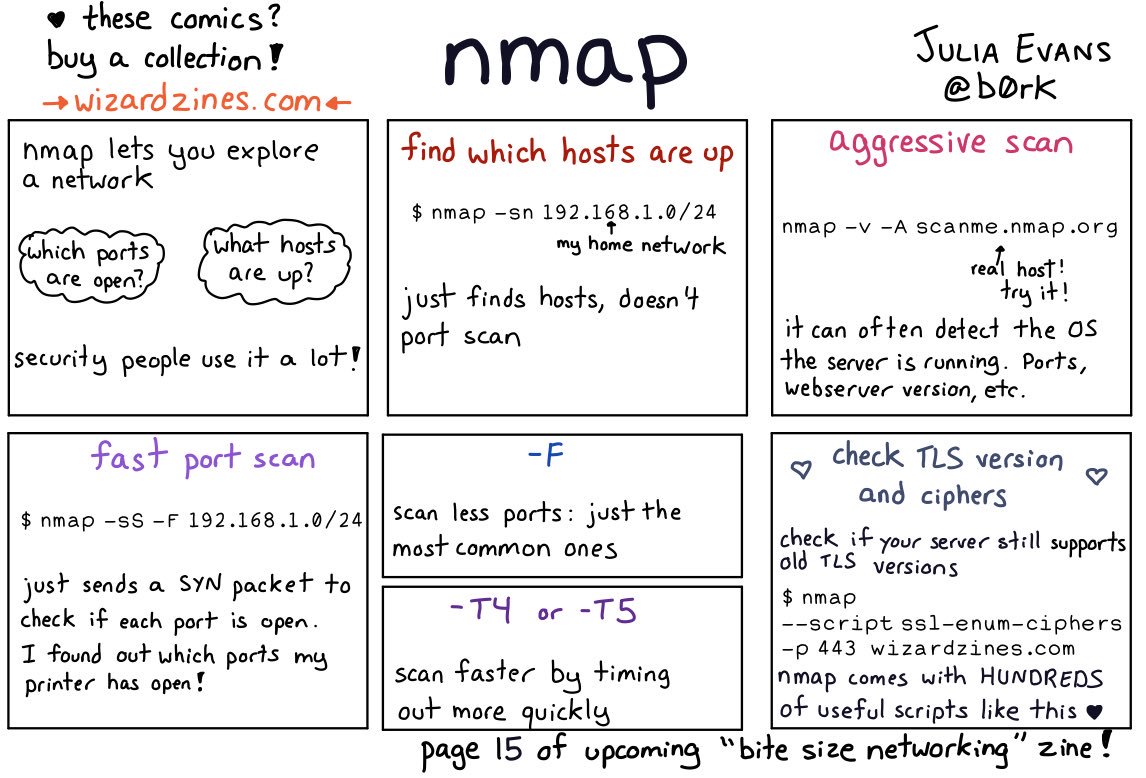 ♥ these comics?
buy a collection!
→wizardzines.com←
nmap
JULIA EVANS
@b0rk
nmap lets you explore
a network
which ports
are open?
what hosts
are up?
security people use it a lot!
find which hosts are up
$ nmap -sn 192.168.1.0/24
↑
my home network
just finds hosts, doesn't
port scan
aggressive scan
nmap -v -A scanme.nmap.org
↑
real host!
try it!
it can often detect the OS
the server is running. Ports,
webserver version, etc.
fast port scan
$ nmap -sS -F 192.168.1.0/24
just sends a SYN packet to
check if each port is open.
I found out which ports my
printer has open!
-F
scan less ports: just the
most common ones
-T4 or -T5
scan faster by timing
out more quickly
♡ check TLS version ♡
and ciphers
check if your server still supports
old TLS versions
$ nmap
--script ssl-enum-ciphers
-p 443 wizardzines.com
nmap comes with HUNDREDS
of useful scripts like this ♥
page 15 of upcoming "bite size networking" zine!